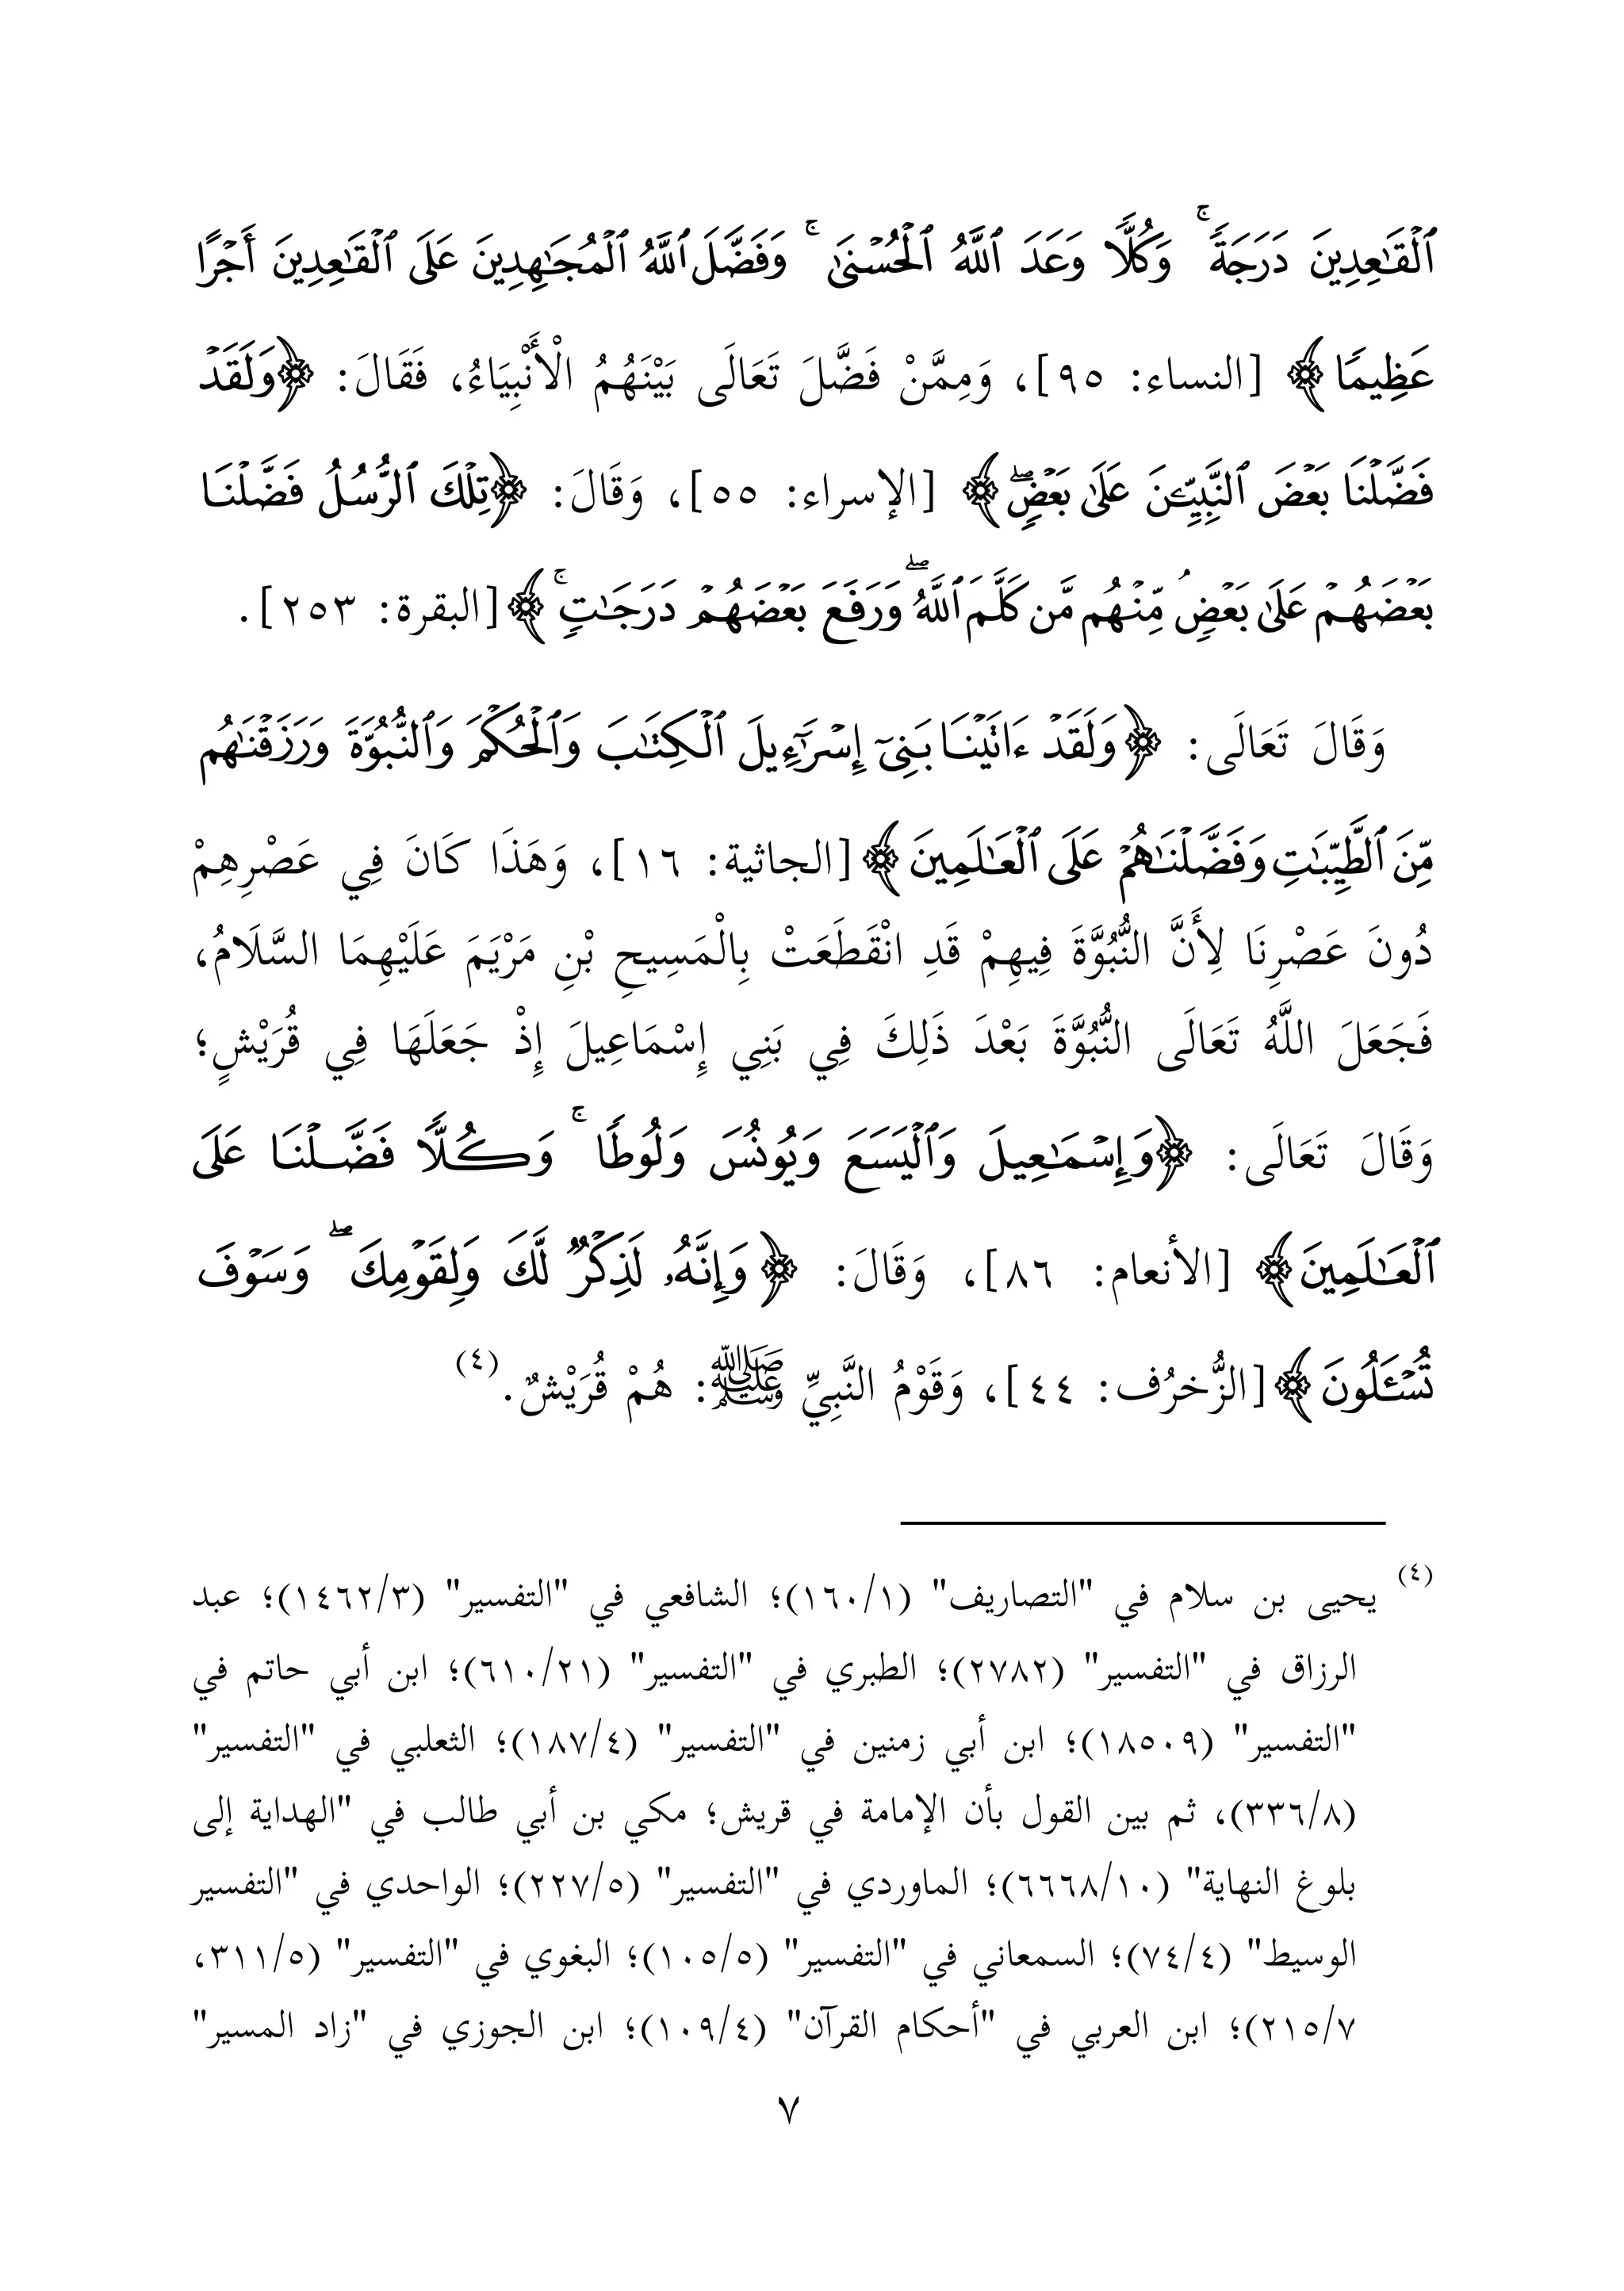 ٱلۡقَٰعِدِينَ دَرَجَةٗۚ وَكُلّٗا وَعَدَ ٱللَّهُ ٱلۡحُسۡنَىٰۚ وَفَضَّلَ ٱللَّهُ ٱلۡمُجَٰهِدِينَ عَلَى ٱلۡقَٰعِدِينَ أَجۡرًا
عَظِيمٗا﴾ [النساء: ٩٥]، وَمِمَّنْ فَضَّلَ تَعَالَى بَيْنَهُمُ الْأَنْبِيَاءُ، فَقَالَ: ﴿وَلَقَدۡ
فَضَّلۡنَا بَعۡضَ ٱلنَّبِيِّـۧنَ عَلَىٰ بَعۡضٖۖ﴾ [الإسراء: ٥٥]، وَقَالَ: ﴿تِلۡكَ ٱلرُّسُلُ فَضَّلۡنَا
بَعۡضَهُمۡ عَلَىٰ بَعۡضٖۘ مِّنۡهُم مَّن كَلَّمَ ٱللَّهُۖ وَرَفَعَ بَعۡضَهُمۡ دَرَجَٰتٖۚ﴾ [البقرة: ٢٥٣].
وَقَالَ تَعَالَى: ﴿وَلَقَدۡ ءَاتَيۡنَا بَنِيٓ إِسۡرَٰٓءِيلَ ٱلۡكِتَٰبَ وَٱلۡحُكۡمَ وَٱلنُّبُوَّةَ وَرَزَقۡنَٰهُم
مِّنَ ٱلطَّيِّبَٰتِ وَفَضَّلۡنَٰهُمۡ عَلَى ٱلۡعَٰلَمِينَ﴾ [الجاثية: ١٦]، وَهَذَا كَانَ فِي عَصْرِهِمْ
دُونَ عَصْرِنَا لِأَنَّ النُّبُوَّةَ فِيهِمْ قَدِ انْقَطَعَتْ بِالْمَسِيحِ بْنِ مَرْيَمَ عَلَيْهِمَا السَّلَامُ،
فَجَعَلَ اللَّهُ تَعَالَى النُّبُوَّةَ بَعْدَ ذَلِكَ فِي بَنِي إِسْمَاعِيلَ إِذْ جَعَلَهَا فِي قُرَيْشٍ؛
وَقَالَ تَعَالَى: ﴿وَإِسۡمَٰعِيلَ وَٱلۡيَسَعَ وَيُونُسَ وَلُوطٗاۚ وَكُلّٗا فَضَّلۡنَا عَلَى
ٱلۡعَٰلَمِينَ﴾ [الأنعام: ٨٦]، وَقَالَ: ﴿وَإِنَّهُۥ لَذِكۡرٞ لَّكَ وَلِقَوۡمِكَۖ وَسَوۡفَ
تُسۡـَٔلُونَ﴾ [الزُّخرُف: ٤٤]، وَقَوْمُ النَّبِيِّ ﷺ: هُمْ قُرَيْشٌ.(٤)
(٤) يحيى بن سلام في "التصاريف" (١/١٦٠)؛ الشافعي في "التفسير" (٣/١٤٦٢)؛ عبد
الرزاق في "التفسير" (٢٧٨٢)؛ الطبري في "التفسير" (٢١/٦١٠)؛ ابن أبي حاتم في
"التفسير" (١٨٥٠٩)؛ ابن أبي زمنين في "التفسير" (٤/١٨٧)؛ الثعلبي في "التفسير"
(٨/٣٣٦)، ثم بين القول بأن الإمامة في قريش؛ مكي بن أبي طالب في "الهداية إلى
بلوغ النهاية" (١٠/٦٦٦٨)؛ الماوردي في "التفسير" (٥/٢٢٧)؛ الواحدي في "التفسير
الوسيط" (٤/٧٤)؛ السمعاني في "التفسير" (٥/١٠٥)؛ البغوي في "التفسير" (٥/٣١١،
٧/٢١٥)؛ ابن العربي في "أحكام القرآن" (٤/١٠٩)؛ ابن الجوزي في "زاد المسير"
٧